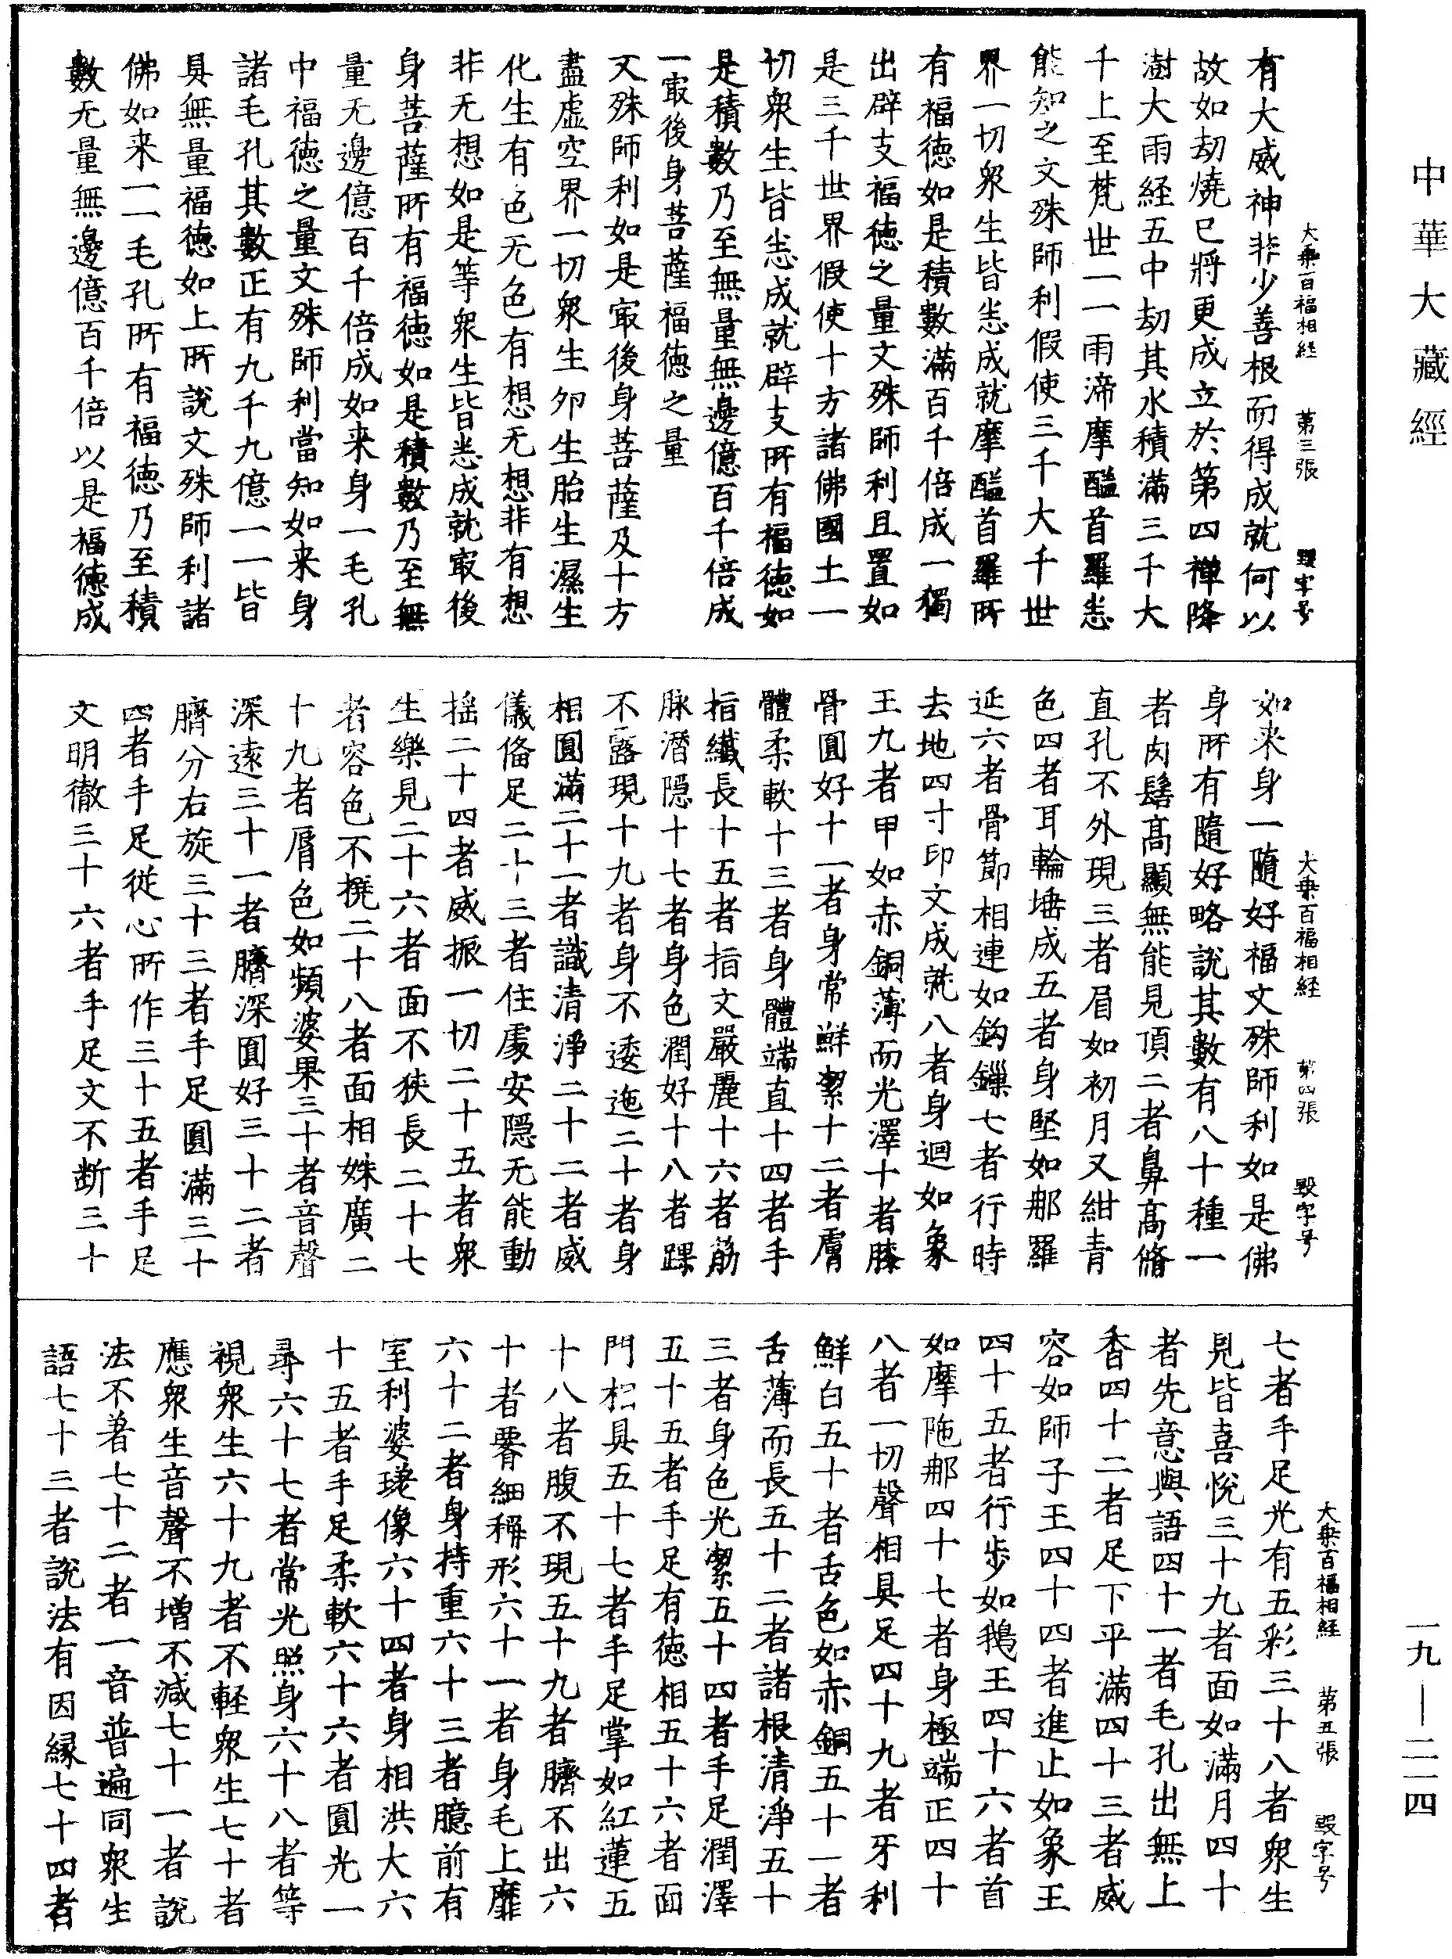 中華大藏經
一九—二一四
大乘百福相經 第三張 毀字号
有大威神非少善根而得成就何以
故如劫燒已將更成立於第四禪降
澍大雨経五中劫其水積滿三千大
千上至梵世一一雨渧摩醯首羅悉
能知之文殊師利假使三千大千世
界一切衆生皆悉成就摩醯首羅所
有福徳如是積數滿百千倍成一獨
出辟支福徳之量文殊師利且置如
是三千世界假使十方諸佛國土一
切衆生皆悉成就辟支所有福徳如
是積數乃至無量無邊億百千倍成
一㝡後身菩薩福徳之量
文殊師利如是㝡後身菩薩及十方
盡虛空界一切衆生夘生胎生濕生
化生有色无色有想无想非有想
非无想如是等衆生皆悉成就㝡後
身菩薩所有福徳如是積數乃至無
量无邊億百千倍成如来身一毛孔
中福徳之量文殊師利當知如来身
諸毛孔其數正有九千九億一一皆
具無量福徳如上所說文殊師利諸
佛如来一一毛孔所有福徳乃至積
數无量無邊億百千倍以是福徳成
大乘百福相経 第四張 毀字号
如来身一隨好福文殊師利如是佛
身所有隨好略說其數有八十種一
者肉髻髙顯無能見頂二者鼻髙脩
直孔不外現三者眉如初月又紺青
色四者耳輪埵成五者身堅如那羅
延六者骨節相連如鈎鏁七者行時
去地四寸印文成就八者身迴如象
王九者甲如赤銅薄而光澤十者膝
骨圓好十一者身常鮮潔十二者膚
體柔軟十三者身體端直十四者手
指纎長十五者指文嚴麗十六者筋
脉潛隐十七者身色潤好十八者踝
不露現十九者身不逶迤二十者身
相圓滿二十一者識清淨二十二者威
儀俻足二十三者住處安隐无能動
揺二十四者威振一切二十五者衆
生樂見二十六者面不狹長二十七
者容色不撓二十八者面相姝廣二
十九者脣色如頻婆果三十者音聲
深遠三十一者臍深圓好三十二者
臍分右旋三十三者手足圓滿三十
四者手足從心所作三十五者手足
文明徹三十六者手足文不断三十
大乗百福相経 第五張 毀字号
七者手足光有五彩三十八者衆生
見皆喜悅三十九者面如滿月四十
者先意與語四十一者毛孔出無上
香四十二者足下平滿四十三者威
容如師子王四十四者進止如象王
四十五者行步如鵝王四十六者首
如摩陁那四十七者身極端正四十
八者一切聲相具足四十九者牙利
鮮白五十者舌色如赤銅五十一者
舌薄而長五十二者諸根清淨五十
三者身色光潔五十四者手足潤澤
五十五者手足有徳相五十六者面
門相具五十七者手足掌如紅蓮五
十八者腹不現五十九者臍不出六
十者䯗細稱形六十一者身毛上靡
六十二者身持重六十三者臆前有
室利婆瑳像六十四者身相洪大六
十五者手足柔軟六十六者圓光一
尋六十七者常光照身六十八者等
視衆生六十九者不軽衆生七十者
應衆生音聲不增不減七十一者說
法不著七十二者一音普遍同衆生
語七十三者說法有因緣七十四者